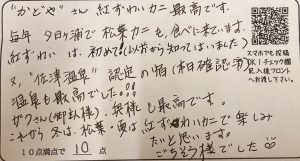 "かどや"さん 紅ずわいカニ 最高です。
毎年 夕日ヶ浦で 松葉カニを 食べに来ています。
紅ずわいは、初めて!(以前から知ってはいました)
又、"佐津温泉" 認定の宿(相確認済)
温泉も最高でした。!!!
ザウさん(御主人様)、奥様も最高です。
これから 冬は、松葉・ は紅ずわいカニで楽しみ
たいと思います。
ごちそう様でした
10点満点で 10 点
スマホでも投稿
OK!チェック欄
記入後フロント
へお渡し下さい。